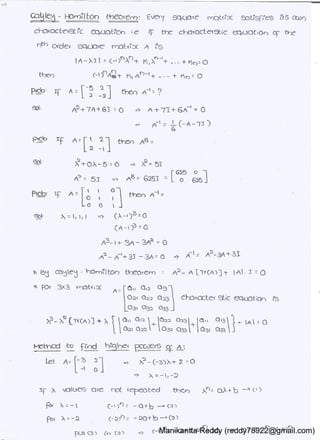 Cayley - Hamilton theorem: Every square matrix satisfies its own
characteristic equation i.e If the characteristic equation of the
nth order square matrix A is
|A-λI| = (-1)ⁿλⁿ + K₁λⁿ⁻¹ + ... + Kn = 0
then (-1)ⁿAⁿ + K₁Aⁿ⁻¹ + ... + Kn = 0
Prob: If A = [-5 2; 2 -2] then A⁻¹ = ?
Sol: A² + 7A + 6I = 0 ⇒ A + 7I + 6A⁻¹ = 0
⇒ A⁻¹ = 1/6 (-A-7I)
Prob: If A = [1 2; 2 -1] then A⁸ =
Sol: λ² + 0λ - 5 = 0 ⇒ λ² = 5I
A² = 5I ⇒ A⁸ = 625I = [625 0; 0 625]
Prob: If A = [1 1 0; 0 1 1; 0 0 1] then A⁻¹ =
Sol: λ = 1, 1, 1 ⇒ (λ-1)³ = 0
(A-I)³ = 0
A³ - I + 3A - 3A² = 0
A² - A⁻¹ + 3I - 3A = 0 ⇒ A⁻¹ = A² - 3A + 3I
* By Cayley - hamilton theorem : A² - A [Tr(A)] + |A|. I = 0
* For 3x3 matrix A = [a11 a12 a13; a21 a22 a23; a31 a32 a33] characteristic equation is
λ³ - λ² [Tr(A)] + λ { |a11 a12; a21 a22| + |a22 a23; a32 a33| + |a11 a13; a31 a33| } - |A| = 0
Method to find higher powers of A:
Let A = [-3 2; -1 0] ⇒ λ² - (-3)λ + 2 = 0
⇒ λ = -1, -2
If λ values are not repeated then λⁿ = aλ + b → (1)
for λ = -1 (-1)ⁿ = -a + b → (2)
For λ = -2 (-2)ⁿ = -2a + b → (3)
Manikanta Reddy (reddy78922@gmail.com)